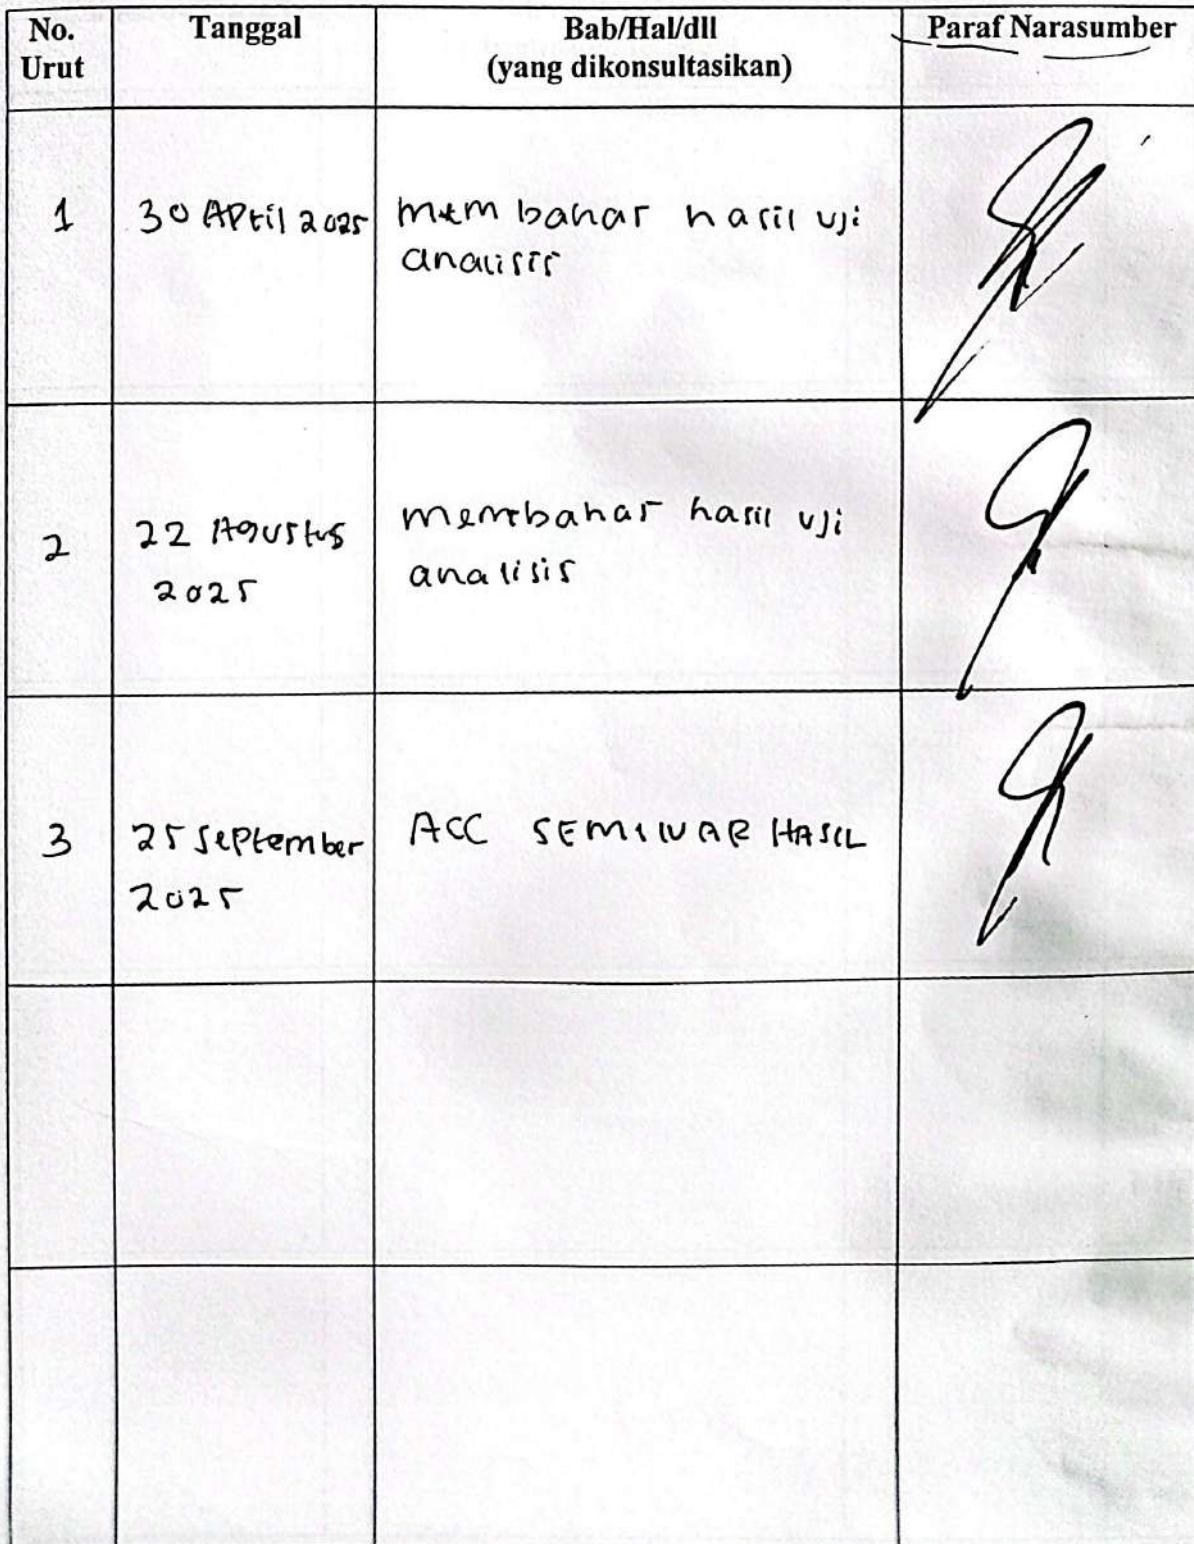 No. Urut Tanggal Bab/Hal/dll (yang dikonsultasikan) Paraf Narasumber
1 30 April 2025 membahas hasil uji
analisis
2 22 Agustus 2025 membahas hasil uji
analisis
3 25 September 2025 ACC SEMINAR HASIL